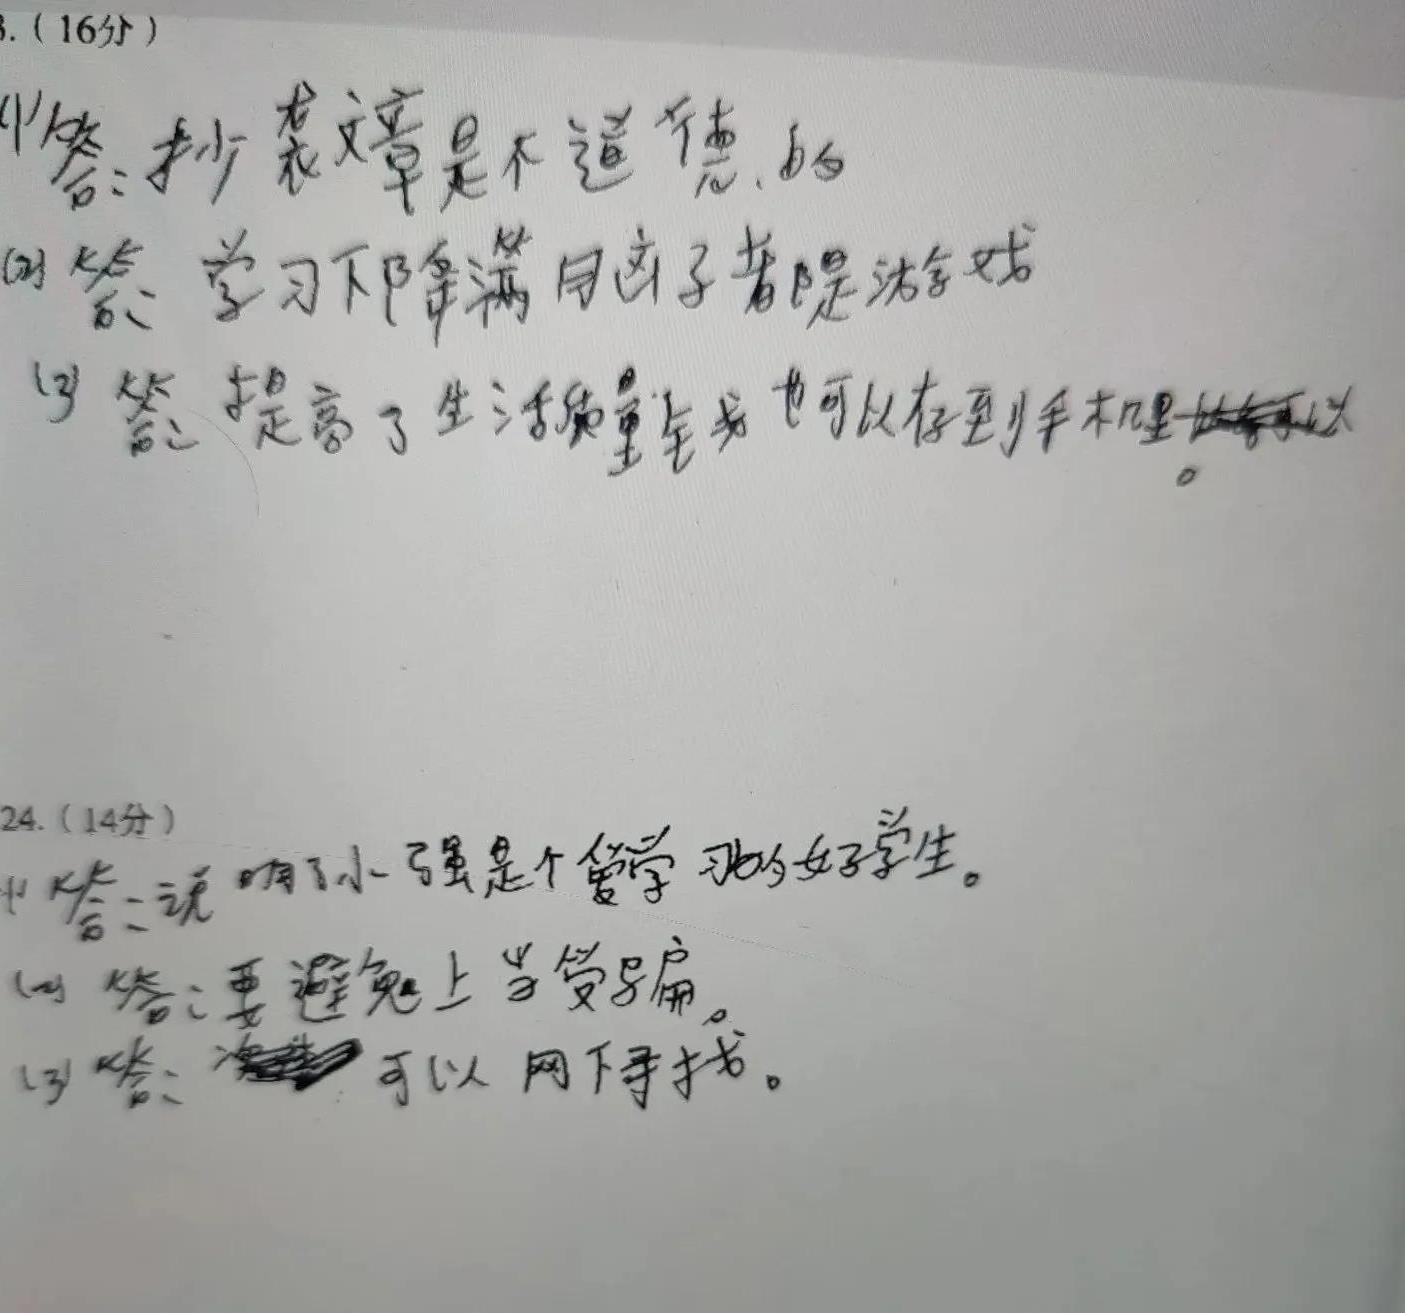 3.(16分)
(1)答:抄袭文章是不道德的
(2)答:学习下降满脑子都是游戏
(3)答:提高了生活质量钱也可以存到手机里。
24.(14分)
(1)答:说明了小强是个爱学习的好学生。
(2)答:要避免上当受骗。
(3)答:可以网下寻找。